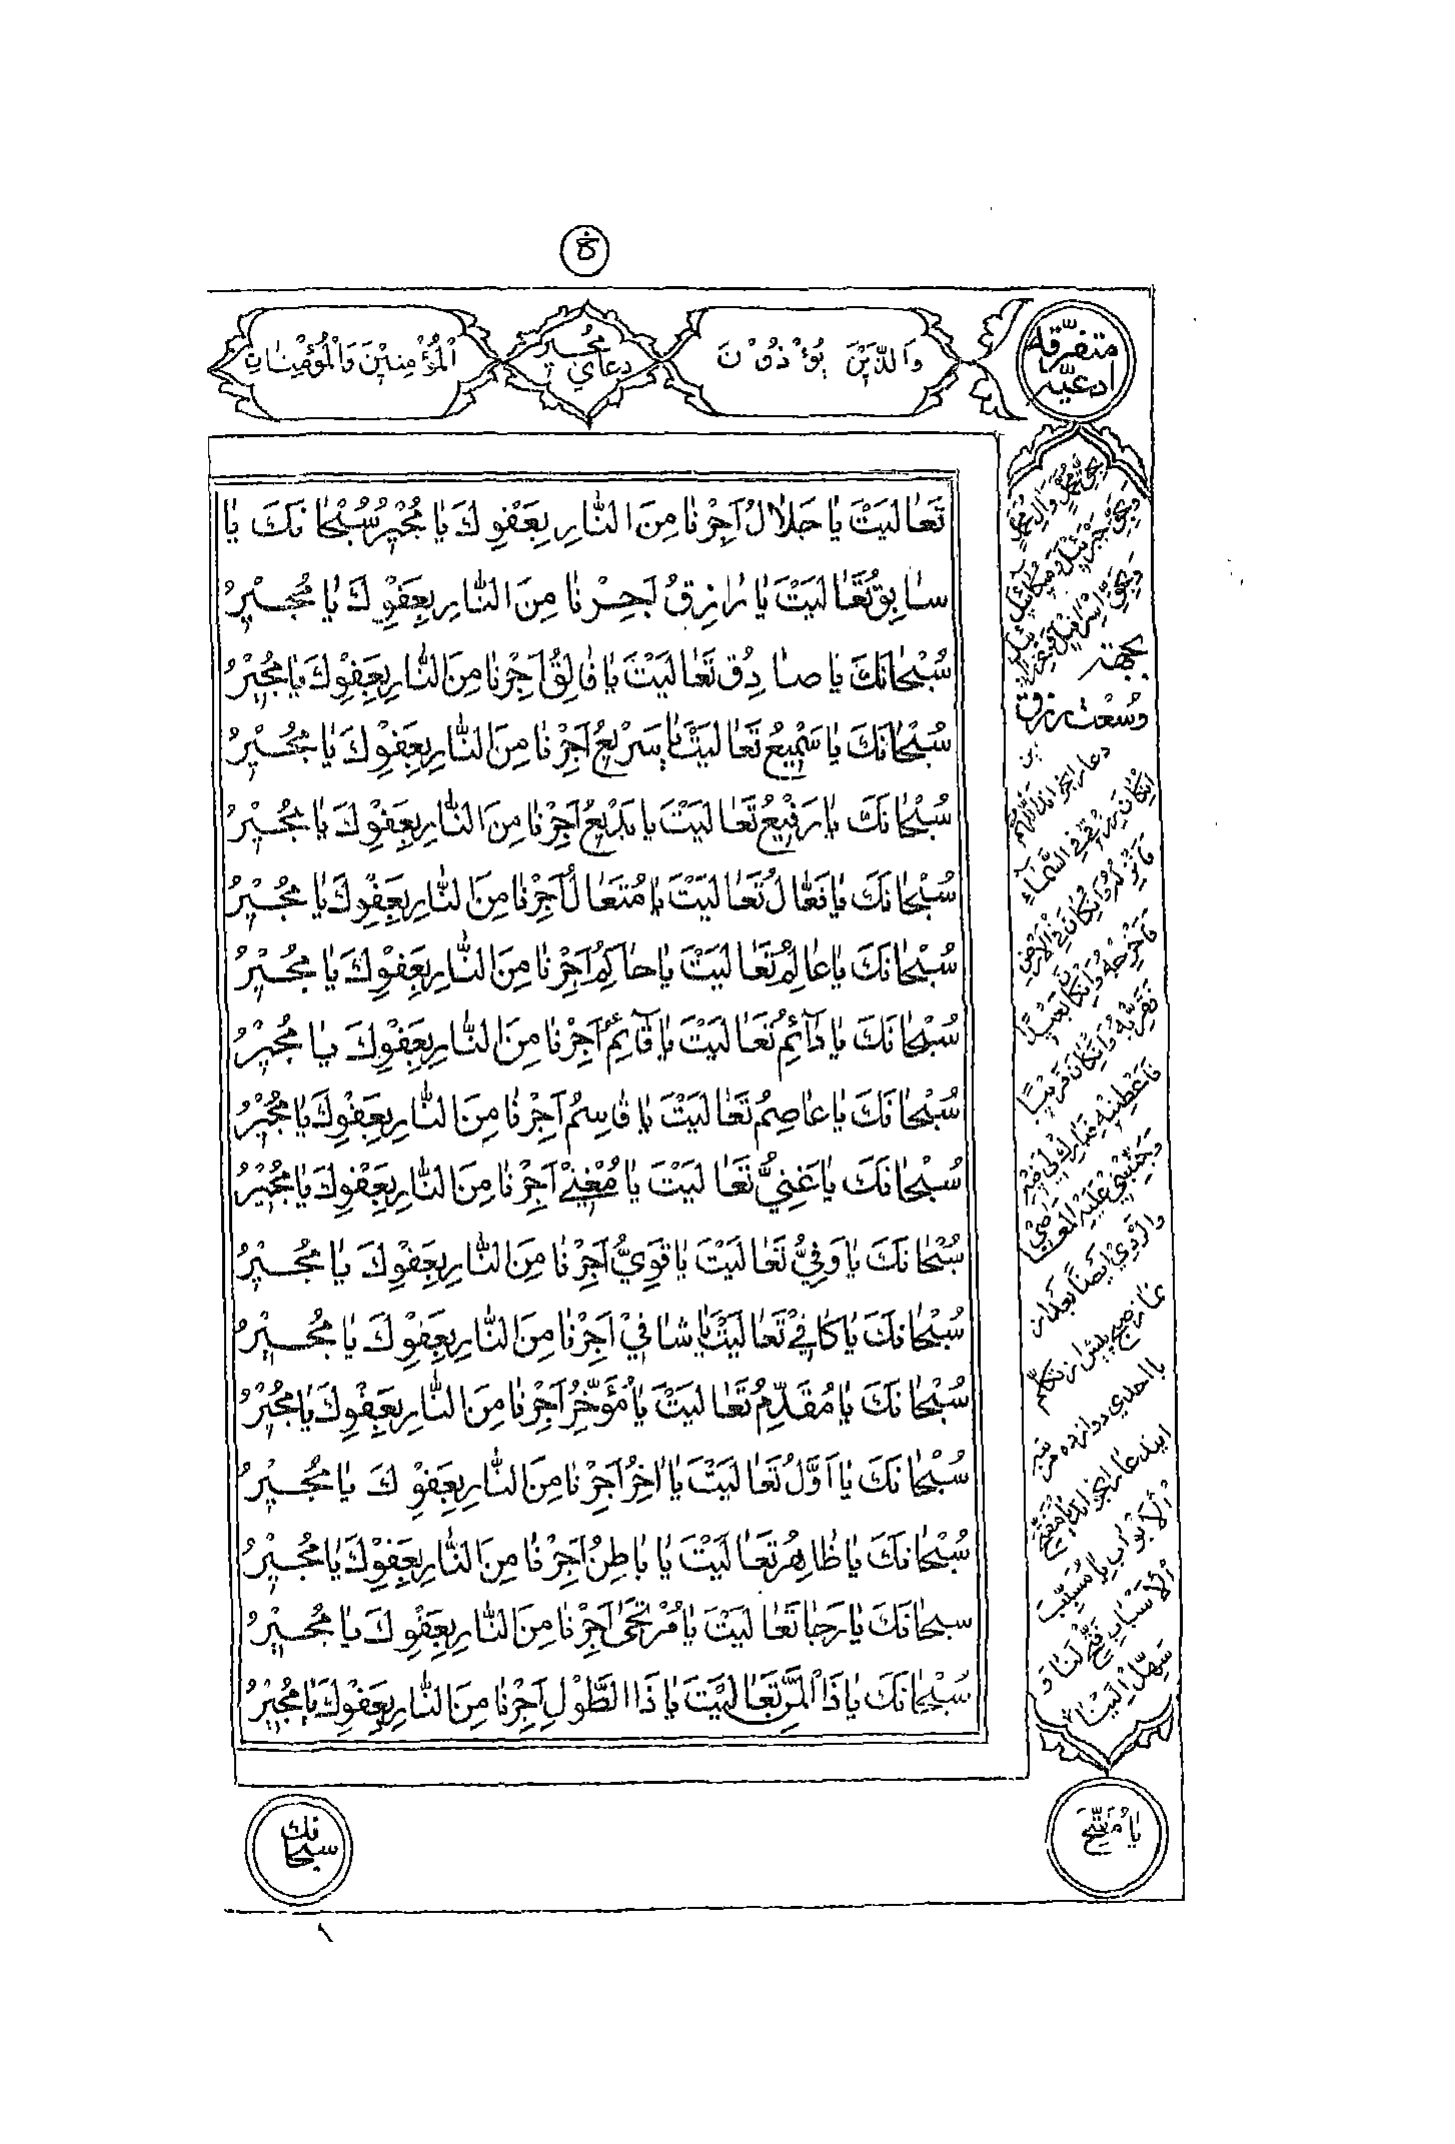 ۵
متفرقه
ادعيّه
وَالَّذِينَ يُؤْذُوْنَ
دعاي مجُير
اَلْمُؤْمِنِيْنَ وَالْمُؤْمِنٰاتِ
تَعٰالَيْتَ يٰا جَلاٰلُ اَجِرْنٰا مِنَ النّٰارِ بِعَفْوِكَ يٰا مُجْيِرُ سُبْحٰانَكَ يٰا
سٰابِقُ تَعٰالَيْتَ يٰا رٰازِقُ اَجِرْنٰا مِنَ النّٰارِ بِعَفْوِكَ يٰا مُجيْرُ
سُبْحٰانَكَ يٰا صٰادِقُ تَعٰالَيْتَ يٰا فٰالِقُ اَجِرْنٰا مِنَ النّٰارِ بِعَفْوِكَ يٰا مُجيْرُ
سُبْحٰانَكَ يٰا سَمْيِعُ تَعٰالَيْتَ يٰا سَرْيعُ اَجِرْنٰا مِنَ النّٰارِ بِعَفْوِكَ يٰا مُجيْرُ
سُبْحٰانَكَ يٰا رَفْيِعُ تَعٰالَيْتَ يٰا بَدْيعُ اَجِرْنٰا مِنَ النّٰارِ بِعَفْوِكَ يٰا مُجيْرُ
سُبْحٰانَكَ يٰا فَعّٰالُ تَعٰالَيْتَ يٰا مُتَعٰالُ اَجِرْنٰا مِنَ النّٰارِ بِعَفْوِكَ يٰا مُجيْرُ
سُبْحٰانَكَ يٰا عٰالِمُ تَعٰالَيْتَ يٰا حٰاكِمُ اَجِرْنٰا مِنَ النّٰارِ بِعَفْوِكَ يٰا مُجيْرُ
سُبْحٰانَكَ يٰا دآئِمُ تَعٰالَيْتَ يٰا قآئِمُ اَجِرْنٰا مِنَ النّٰارِ بِعَفْوِكَ يٰا مُجيْرُ
سُبْحٰانَكَ يٰا عٰاصِمُ تَعٰالَيْتَ يٰا قٰاسِمُ اَجِرْنٰا مِنَ النّٰارِ بِعَفْوِكَ يٰا مُجيْرُ
سُبْحٰانَكَ يٰا غَنِيُّ تَعٰالَيْتَ يٰا مُغْنيْ اَجِرْنٰا مِنَ النّٰارِ بِعَفْوِكَ يٰا مُجيْرُ
سُبْحٰانَكَ يٰا وَفِيُّ تَعٰالَيْتَ يٰا قَوِيُّ اَجِرْنٰا مِنَ النّٰارِ بِعَفْوِكَ يٰا مُجيْرُ
سُبْحٰانَكَ يٰا كٰافيْ تَعٰالَيْتَ يٰا شٰافيْ اَجِرْنٰا مِنَ النّٰارِ بِعَفْوِكَ يٰا مُجيْرُ
سُبْحٰانَكَ يٰا مُقَدِّمُ تَعٰالَيْتَ يٰا مُؤَخِّرُ اَجِرْنٰا مِنَ النّٰارِ بِعَفْوِكَ يٰا مُجيْرُ
سُبْحٰانَكَ يٰا اَوَّلُ تَعٰالَيْتَ يٰا اٰخِرُ اَجِرْنٰا مِنَ النّٰارِ بِعَفْوِكَ يٰا مُجيْرُ
سُبْحٰانَكَ يٰا ظٰاهِرُ تَعٰالَيْتَ يٰا بٰاطِنُ اَجِرْنٰا مِنَ النّٰارِ بِعَفْوِكَ يٰا مُجيْرُ
سبحٰانَكَ يٰا رَجٰا تَعٰالَيْتَ يٰا مُرْتَجىٰ اَجِرْنٰا مِنَ النّٰارِ بِعَفْوِكَ يٰا مُجيْرُ
سُبْحٰانَكَ يٰا ذَا الْمَنِّ تَعٰالَيْتَ يٰا ذَا الطَّوْلِ اَجِرْنٰا مِنَ النّٰارِ بِعَفْوِكَ يٰا مُجيْرُ
بِحَقِّ مُحَمَّدٍ وَاٰلِ مُحَمَّدٍ
وَبِحَقِّ جَبْرَئيْلَ وَميكائيْلَ
وَبِحَقِّ اِسْرٰافيْلَ
بجهة
وُسْعَت رزق
دعا را بخواند اَللّٰهُمَّ
اِنْ كٰانَ رِزْقيْ فِي السَّمٰاءِ
فَاَنْزِلْهُ وَاِنْ كٰانَ فِي الْاَرْضِ
فَاَخْرِجْهُ وَاِنْ كٰانَ بَعيْدًا
فَقَرِّبْهُ وَاِنْ كٰانَ قَريْبًا
فَاَعْطِنيْهِ وَبٰارِكْ ليْ فيْهِ
وَجَنِّبْنيْ عَلَيْهِ الْمَعٰاصيْ
وَالرَّدىْ ايضاً بعد از
نماز صبح پيش از تكلّم
با احدي دوازده مرتبه
ايندعا را بخواند يٰا مُفَتِّحَ
الْاَبْوٰابِ يٰا مُسَبِّبَ
الْاَسْبٰابِ فَتِّحْ لَنٰا وَ
سَهِّلْ اِلَيْنٰا
سبحانك
يٰا مُفَتِّحَ